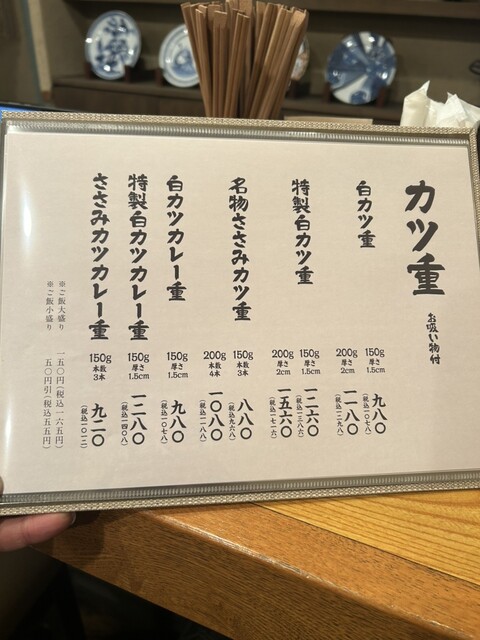 カツ重
お吸い物付
白カツ重
150g
厚さ
1.5cm
九八〇
（税込一〇七八）
200g
厚さ
2cm
一一八〇
（税込一二九八）
特製白カツ重
150g
厚さ
1.5cm
一二六〇
（税込一三八六）
200g
厚さ
2cm
一五六〇
（税込一七一六）
名物ささみカツ重
150g
本数
3本
八八〇
（税込九六八）
200g
本数
4本
一〇八〇
（税込一一八八）
白カツカレー重
150g
厚さ
1.5cm
九八〇
（税込一〇七八）
特製白カツカレー重
150g
厚さ
1.5cm
一二八〇
（税込一四〇八）
ささみカツカレー重
150g
本数
3本
九二〇
（税込一〇一二）
※ご飯大盛り 一五〇円（税込一六五円）
※ご飯小盛り 五〇円引（税込五五円）